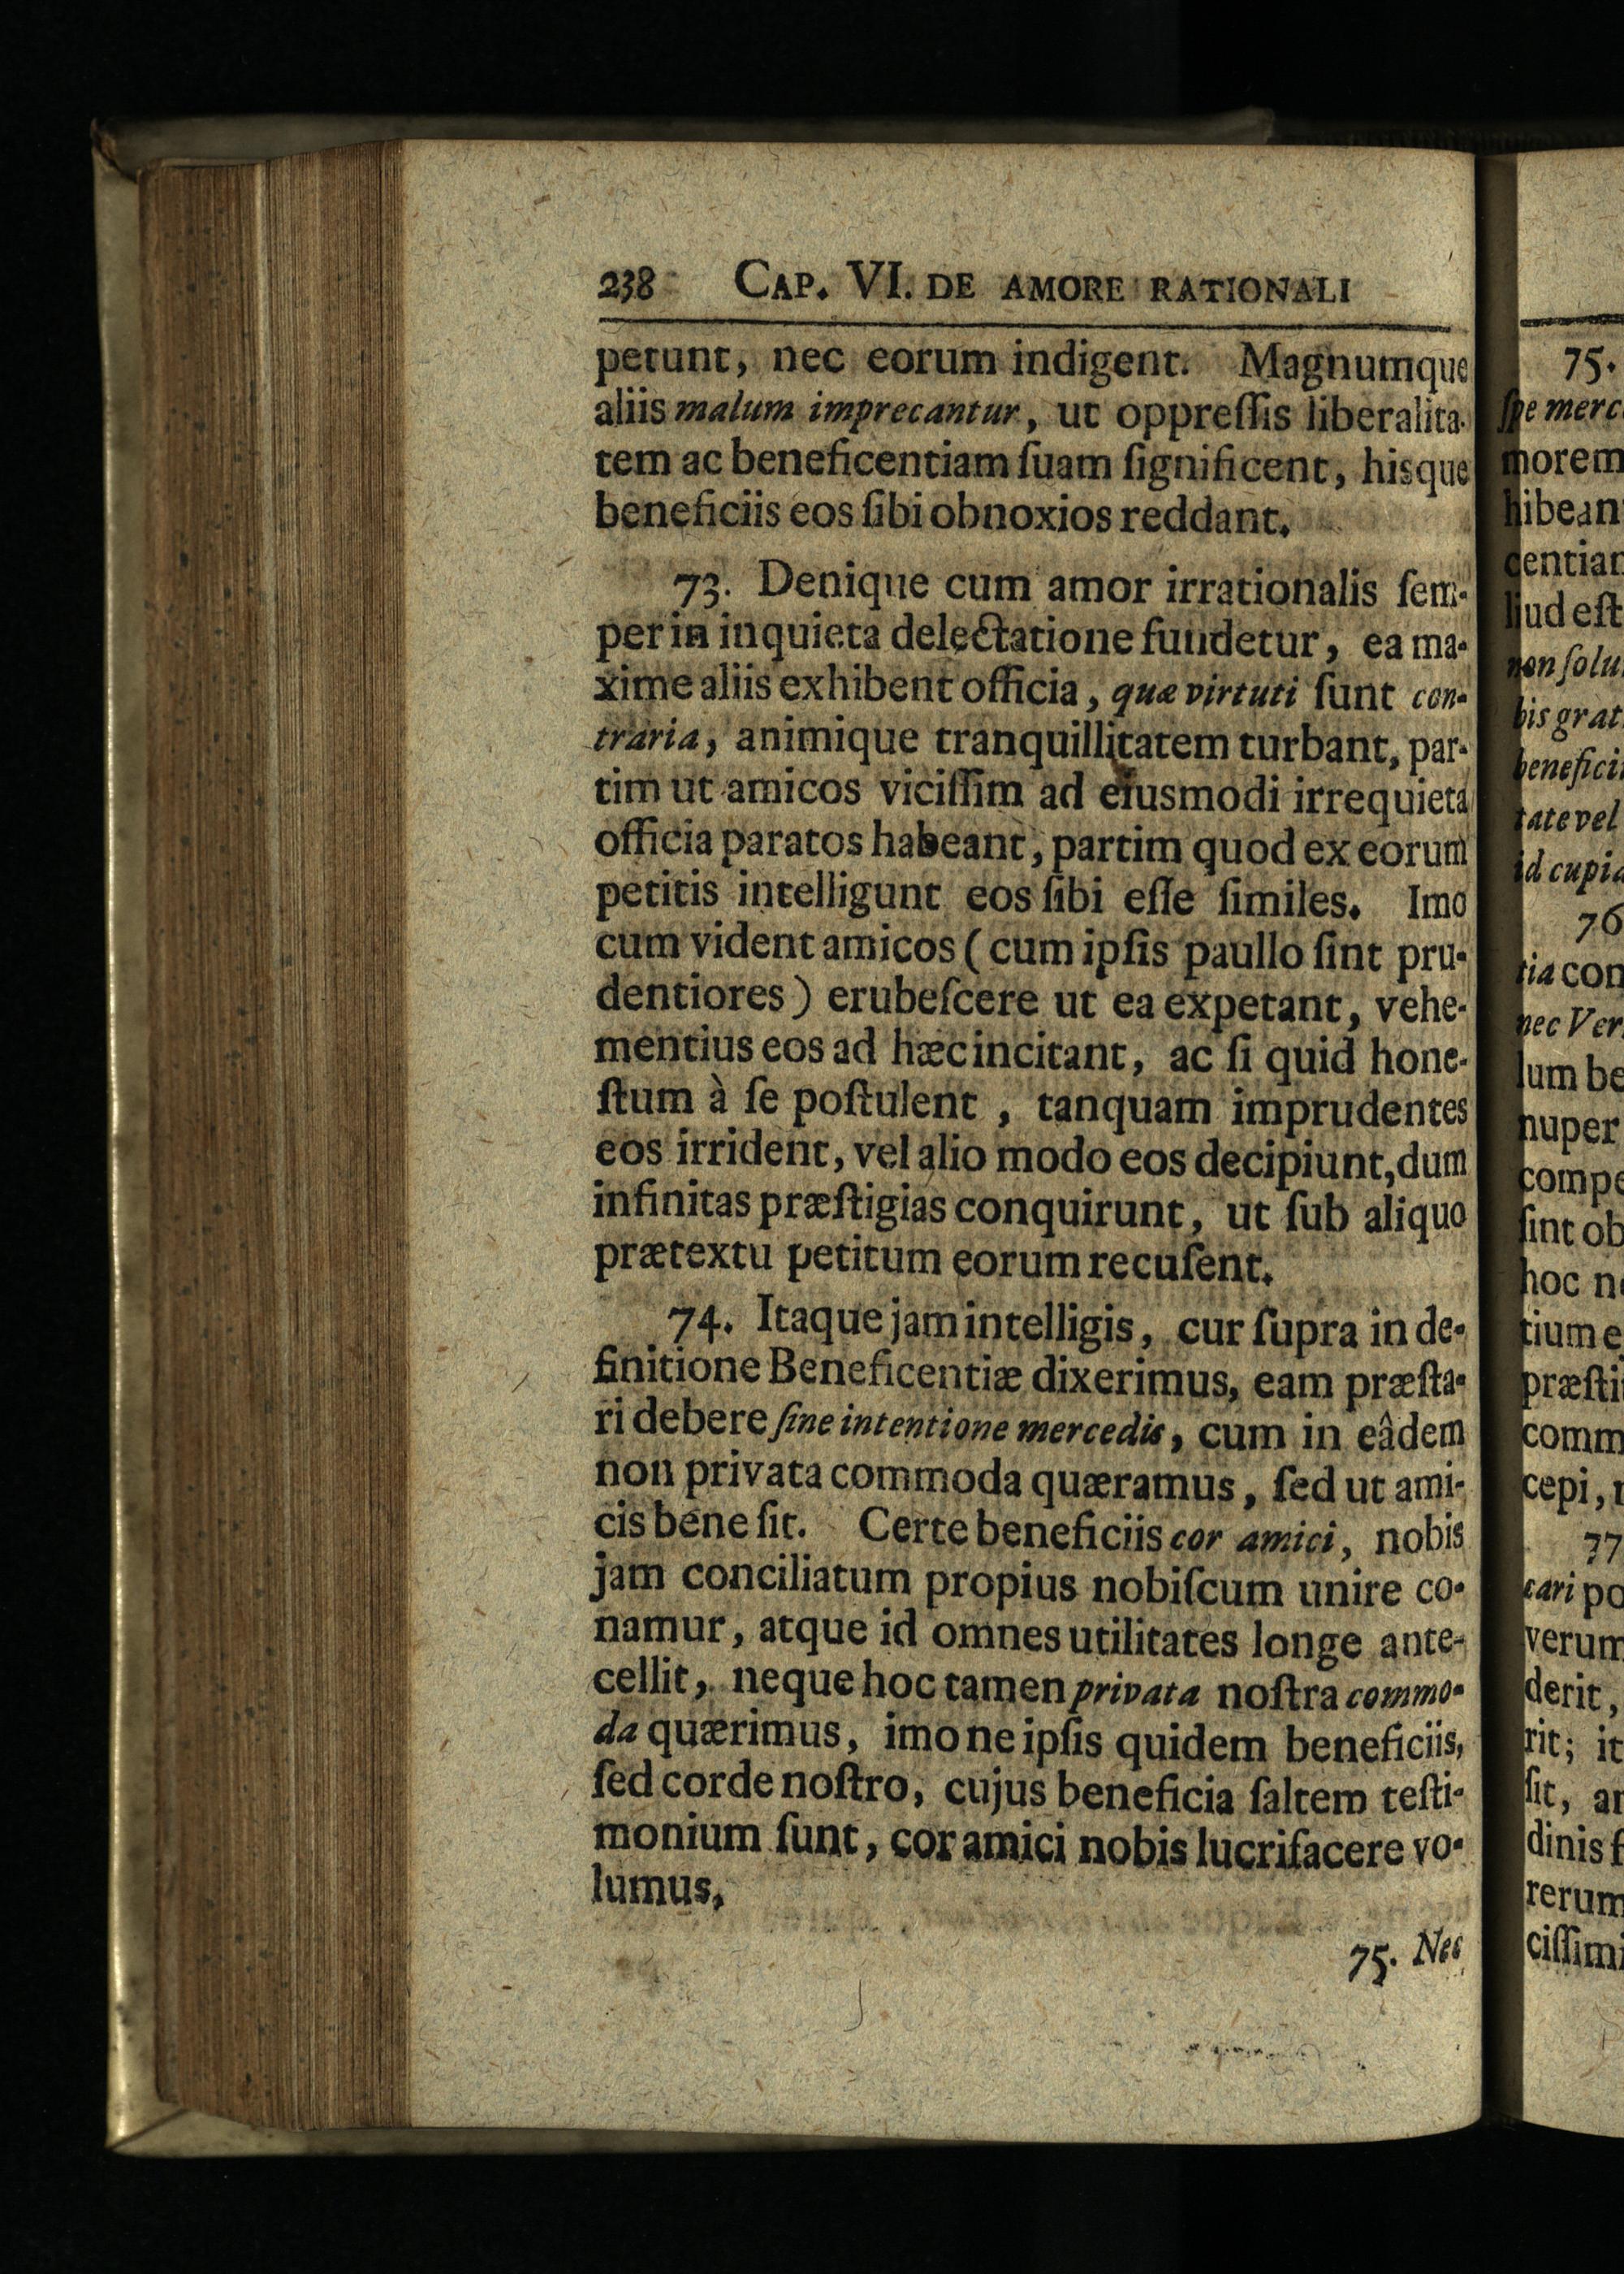 238 CAP. VI. DE AMORE RATIONALI
petunt, nec eorum indigent. Magnumque
aliis malum imprecantur, ut oppreſſis liberalita-
tem ac beneficentiam ſuam ſignificent, hisque
beneficiis eos ſibi obnoxios reddant.
73. Denique cum amor irrationalis ſem-
per in inquieta delectatione fundetur, ea ma-
xime aliis exhibent officia, quæ virtuti ſunt con-
traria, animique tranquillitatem turbant, par-
tim ut amicos viciſſim ad eiusmodi irrequieta
officia paratos habeant, partim quod ex eorum
petitis intelligunt eos ſibi eſſe ſimiles. Imo
cum vident amicos (cum ipſis paullo ſint pru-
dentiores) erubeſcere ut ea expetant, vehe-
mentius eos ad hæc incitant, ac ſi quid hone-
ſtum à ſe poſtulent, tanquam imprudentes
eos irrident, vel alio modo eos decipiunt, dum
infinitas præſtigias conquirunt, ut ſub aliquo
prætextu petitum eorum recuſent.
74. Itaque jam intelligis, cur ſupra in de-
finitione Beneficentiæ dixerimus, eam præſta-
ri debere ſine intentione mercedis, cum in eâdem
non privata commoda quæramus, ſed ut ami-
cis bene ſit. Certe beneficiis cor amici, nobis
jam conciliatum propius nobiſcum unire co-
namur, atque id omnes utilitates longe ante-
cellit, neque hoc tamen privata noſtra commo-
da quærimus, imo ne ipſis quidem beneficiis,
ſed corde noſtro, cujus beneficia ſaltem teſti-
monium ſunt, cor amici nobis lucrifacere vo-
lumus.
75. Nec
75.
ſpe merc
morem
hibean
centiar
liud eſt
non ſolu
bis grat
benefici
tate vel
id cupia
76
tia con
nec Ver
lum be
nuper
compe
ſint ob
hoc n
tium e
præſti
comm
cepi,
77
cari po
verum
derit,
rit; it
ſit, ar
dinis f
rerum
ciſſimi